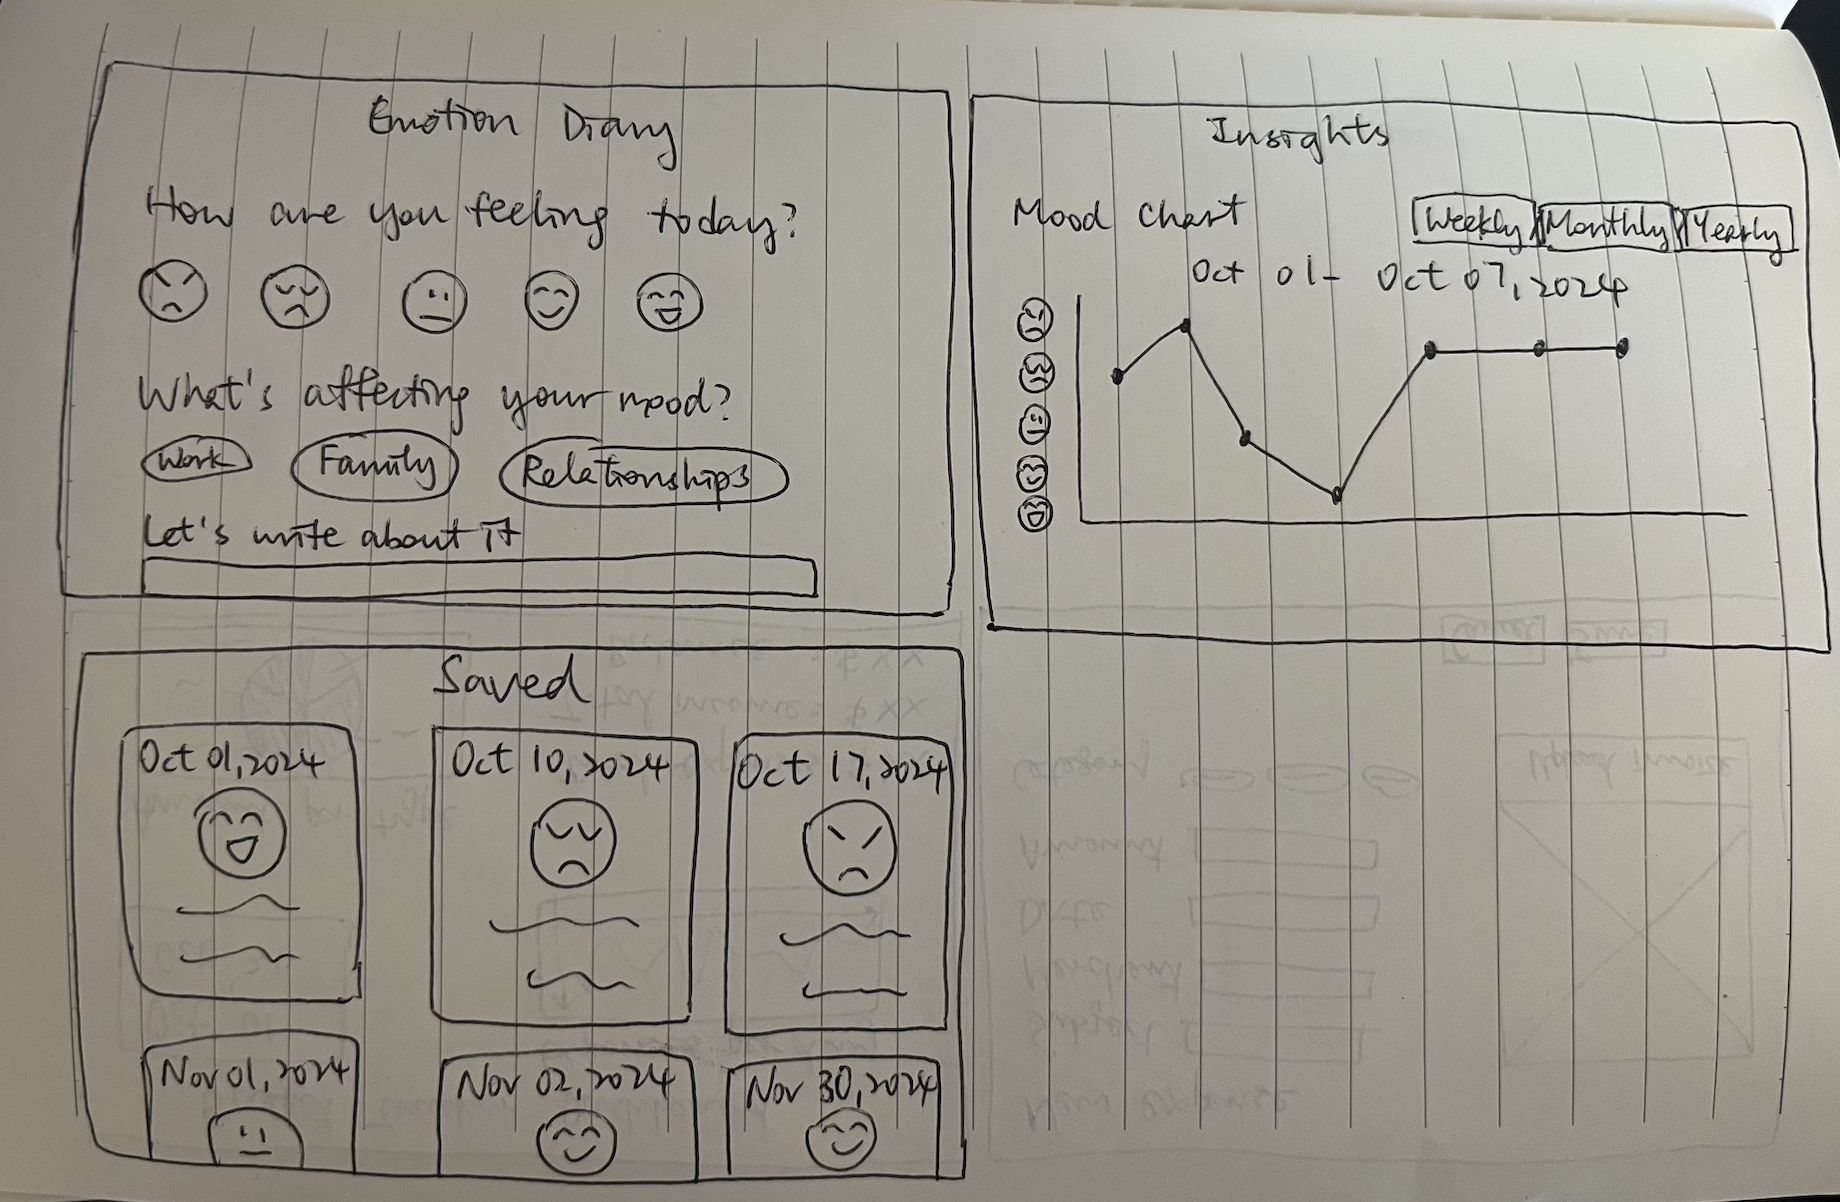 Emotion Diary
How are you feeling today?
What's affecting your mood?
Work Family Relationships
Let's write about it
Insights
Mood chart
Weekly Monthly Yearly
Oct 01- Oct 07, 2024
Saved
Oct 01, 2024
Oct 10, 2024
Oct 17, 2024
Nov 01, 2024
Nov 02, 2024
Nov 30, 2024